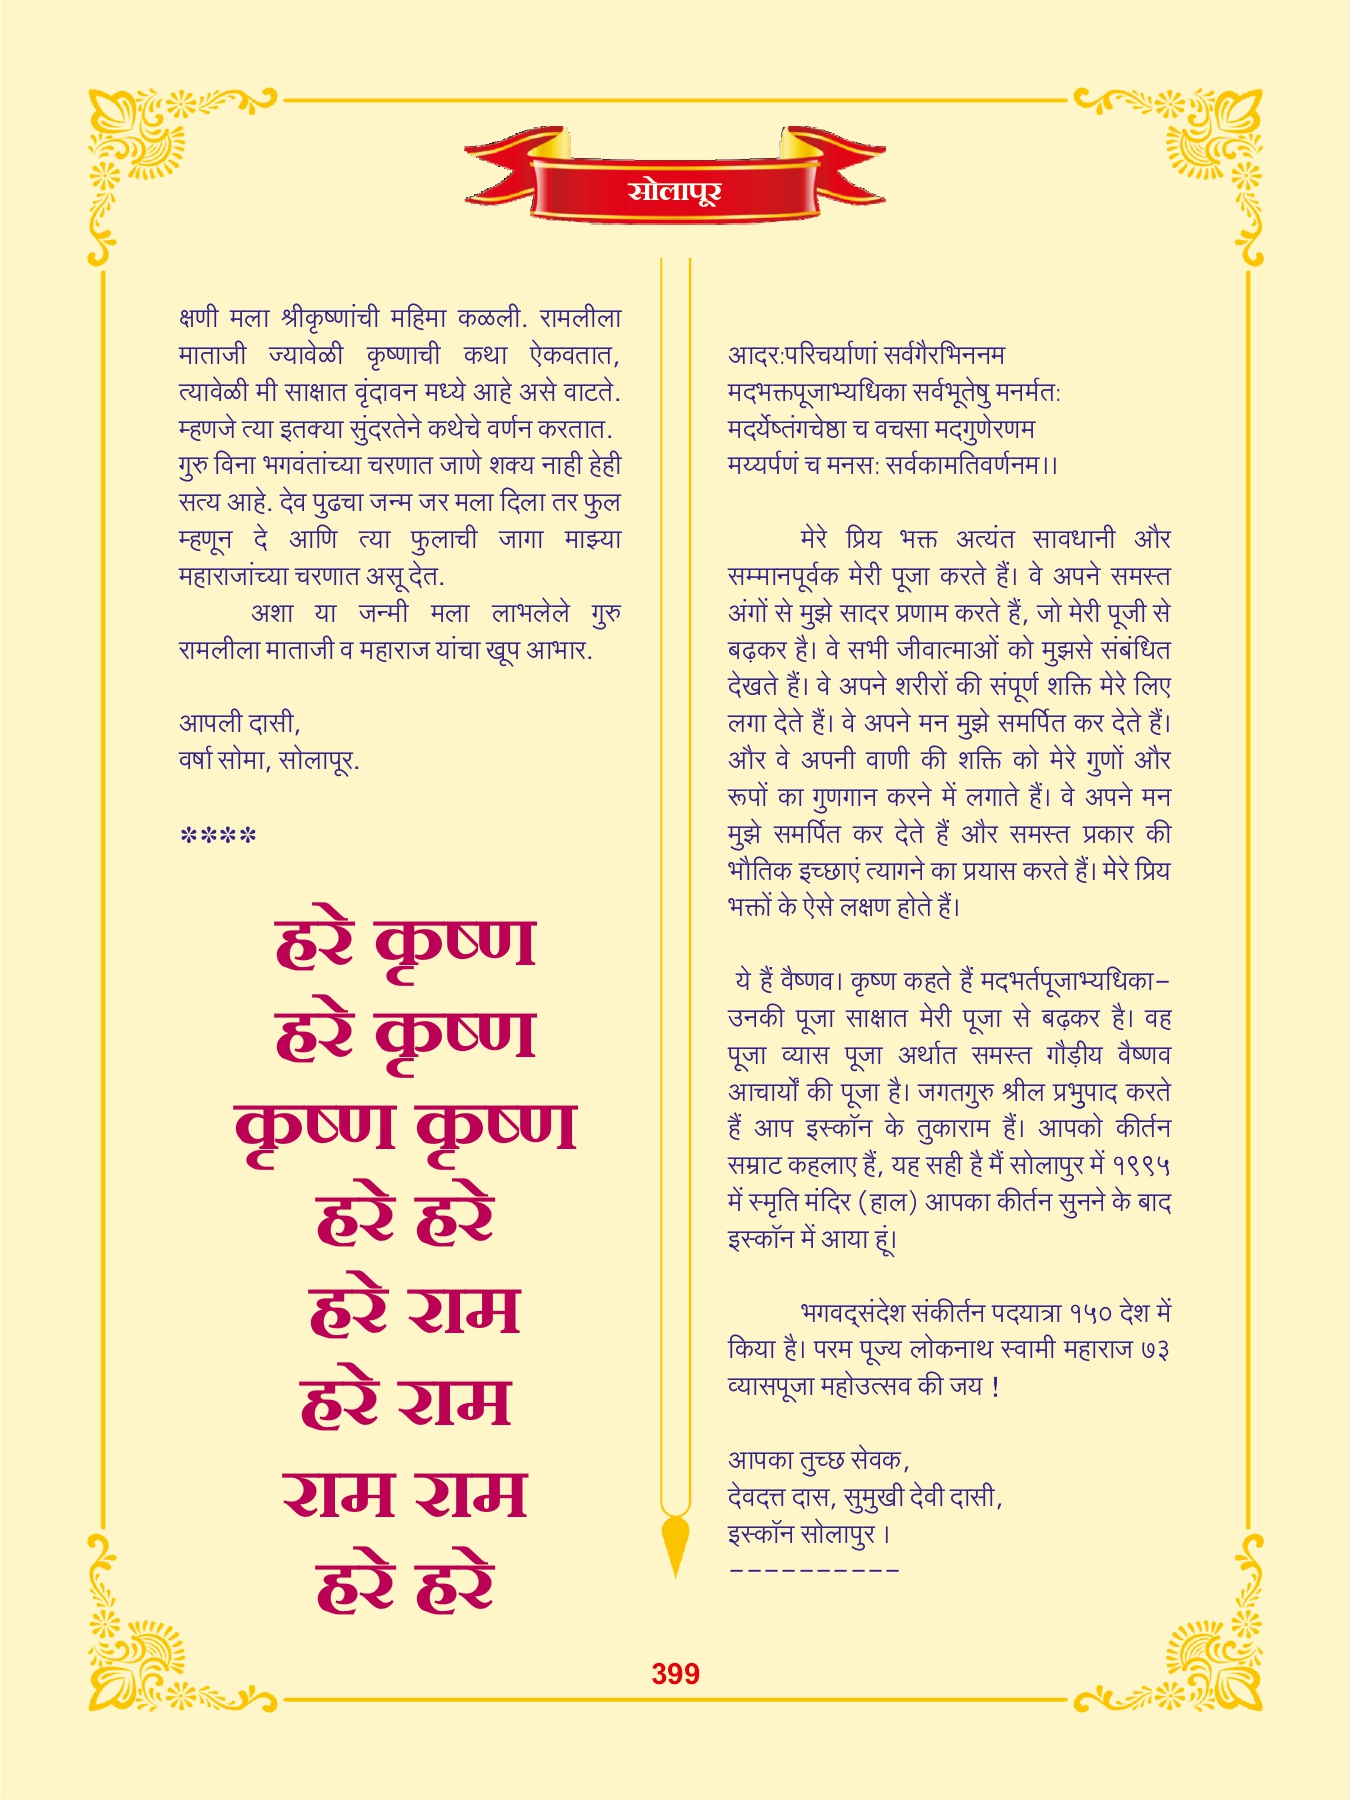 सोलापूर
क्षणी मला श्रीकृष्णांची महिमा कळली. रामलीला
माताजी ज्यावेळी कृष्णाची कथा ऐकवतात,
त्यावेळी मी साक्षात वृंदावन मध्ये आहे असे वाटते.
म्हणजे त्या इतक्या सुंदरतेने कथेचे वर्णन करतात.
गुरु विना भगवंतांच्या चरणात जाणे शक्य नाही हेही
सत्य आहे. देव पुढचा जन्म जर मला दिला तर फुल
म्हणून दे आणि त्या फुलाची जागा माझ्या
महाराजांच्या चरणात असू देत.
अशा या जन्मी मला लाभलेले गुरु
रामलीला माताजी व महाराज यांचा खूप आभार.
आपली दासी,
वर्षा सोमा, सोलापूर.
****
हरे कृष्ण
हरे कृष्ण
कृष्ण कृष्ण
हरे हरे
हरे राम
हरे राम
राम राम
हरे हरे
आदर:परिचर्याणां सर्वगैरभिननम
मदभक्तपूजाभ्यधिका सर्वभूतेषु मनर्मत:
मदर्येष्तंगचेष्ठा च वचसा मदगुणेरणम
मय्यर्पणं च मनस: सर्वकामतिवर्णनम।।
मेरे प्रिय भक्त अत्यंत सावधानी और
सम्मानपूर्वक मेरी पूजा करते हैं। वे अपने समस्त
अंगों से मुझे सादर प्रणाम करते हैं, जो मेरी पूजी से
बढ़कर है। वे सभी जीवात्माओं को मुझसे संबंधित
देखते हैं। वे अपने शरीरों की संपूर्ण शक्ति मेरे लिए
लगा देते हैं। वे अपने मन मुझे समर्पित कर देते हैं।
और वे अपनी वाणी की शक्ति को मेरे गुणों और
रूपों का गुणगान करने में लगाते हैं। वे अपने मन
मुझे समर्पित कर देते हैं और समस्त प्रकार की
भौतिक इच्छाएं त्यागने का प्रयास करते हैं। मेरे प्रिय
भक्तों के ऐसे लक्षण होते हैं।
ये हैं वैष्णव। कृष्ण कहते हैं मदभर्तपूजाभ्यधिका–
उनकी पूजा साक्षात मेरी पूजा से बढ़कर है। वह
पूजा व्यास पूजा अर्थात समस्त गौड़ीय वैष्णव
आचार्यों की पूजा है। जगतगुरु श्रील प्रभुपाद करते
हैं आप इस्कॉन के तुकाराम हैं। आपको कीर्तन
सम्राट कहलाए हैं, यह सही है मैं सोलापुर में १९९५
में स्मृति मंदिर (हाल) आपका कीर्तन सुनने के बाद
इस्कॉन में आया हूं।
भगवद्संदेश संकीर्तन पदयात्रा १५० देश में
किया है। परम पूज्य लोकनाथ स्वामी महाराज ७३
व्यासपूजा महोउत्सव की जय !
आपका तुच्छ सेवक,
देवदत्त दास, सुमुखी देवी दासी,
इस्कॉन सोलापुर ।
----------
399